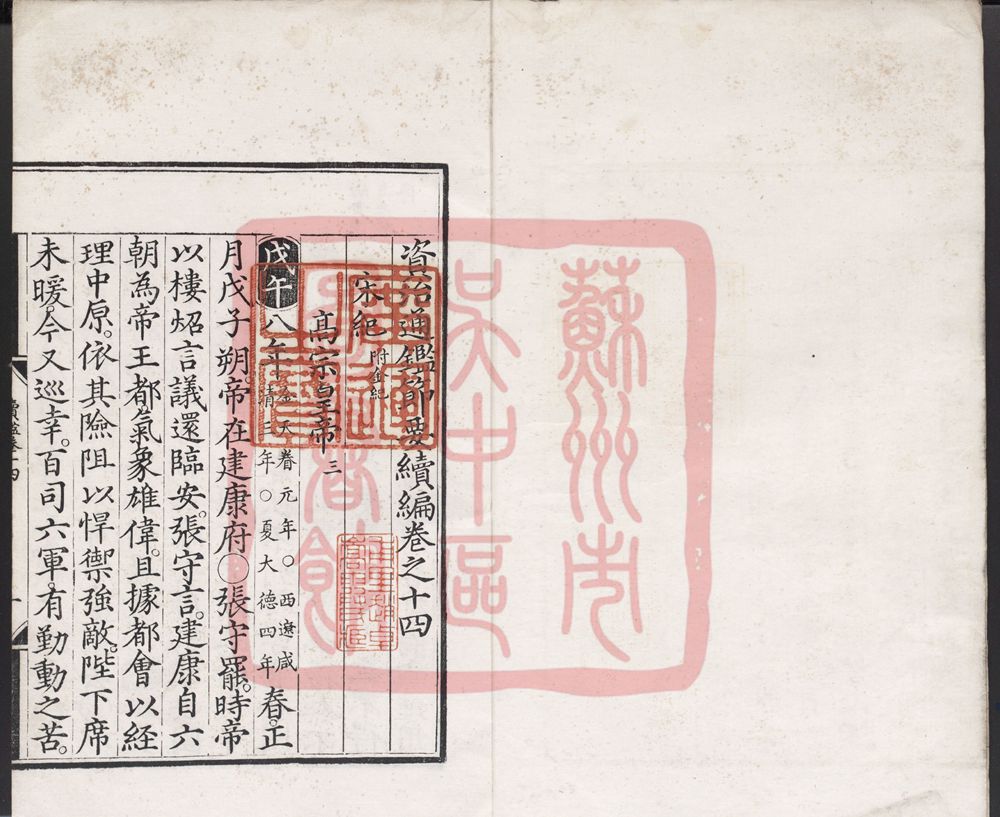 蘇州市
吳中區
圖書館
資治通鑑節要續編卷之十四
宋紀附金紀
高宗皇帝三
戊午八年金天眷元年○西遼咸清三年○夏大德四年春。正
月戊子朔。帝在建康府○張守罷。時帝
以樓炤言議還臨安。張守言。建康自六
朝為帝王都。氣象雄偉。且據都會以經
理中原。依其險阻以悍禦強敵。陛下席
未暖。今又巡幸。百司六軍。有勤動之苦。